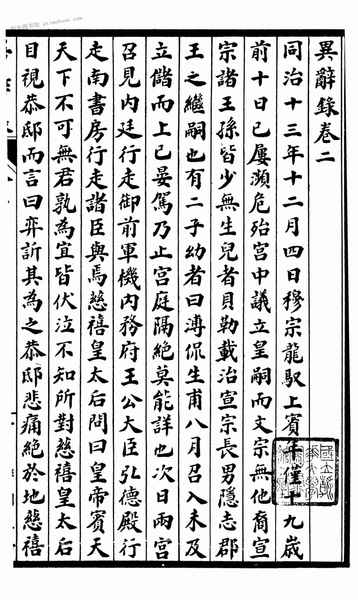 異辭錄卷二
同治十三年十二月四日穆宗龍馭上賓年僅十九歲
前十日已屢瀕危殆宮中議立皇嗣而文宗無他裔宣
宗諸王孫皆少無生兒者貝勒載治宣宗長男隱志郡
王之繼嗣也有二子幼者曰溥侃生甫八月召入未及
立儲而上已晏駕乃止宮庭隔絕莫能詳也次日兩宮
召見內廷行走御前軍機內務府王公大臣弘德殿行
走南書房行走諸臣與焉慈禧皇太后問曰皇帝賓天
天下不可無君孰為宜皆伏泣不知所對慈禧皇太后
目視恭邸而言曰奕訢其為之恭邸悲痛絕於地慈禧